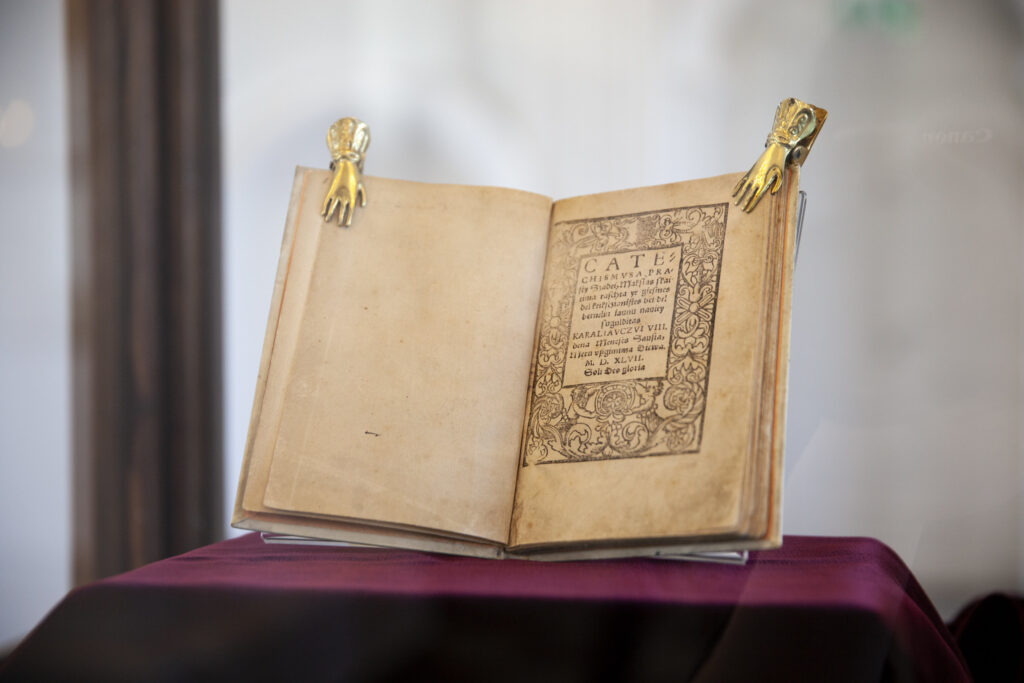 CATE⸗
CHISMVSA PRA⸗
sty Szadei, Makslas skai
tima raschta yr giesmes
del kriksczianistes bei del
berneliu iaunu nauiey
sugulditas
KARALIAVCZVI VIII.
dena Meneses Sausia,
Metu vßgimima Diewa.
M. D. XLVII.
Soli Deo gloria
Canon